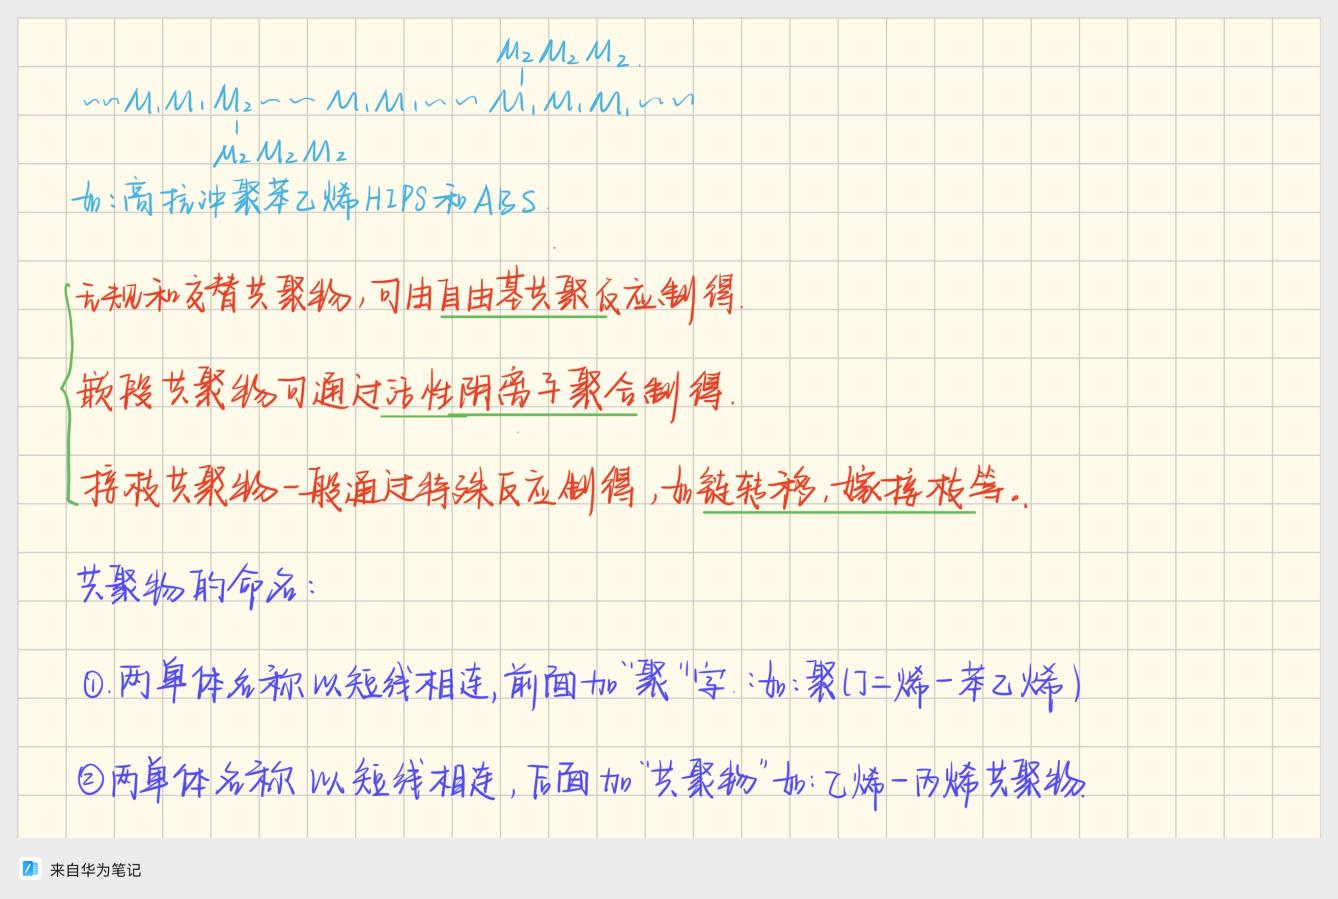 M₂M₂M₂.
~~M₁M₁M₂~~M₁M₁~~M₁M₁M₁~~
M₂M₂M₂
如:高抗冲聚苯乙烯HIPS和ABS.
无规和交替共聚物,可由自由基共聚反应制得.
嵌段共聚物可通过活性阴离子聚合制得.
接枝共聚物一般通过特殊反应制得,如链转移,嫁接枝等。.
共聚物的命名:
①.两单体名称以短线相连,前面加"聚"字.:如:聚(丁二烯-苯乙烯)
②两单体名称以短线相连,后面加"共聚物"如:乙烯-丙烯共聚物.
来自华为笔记